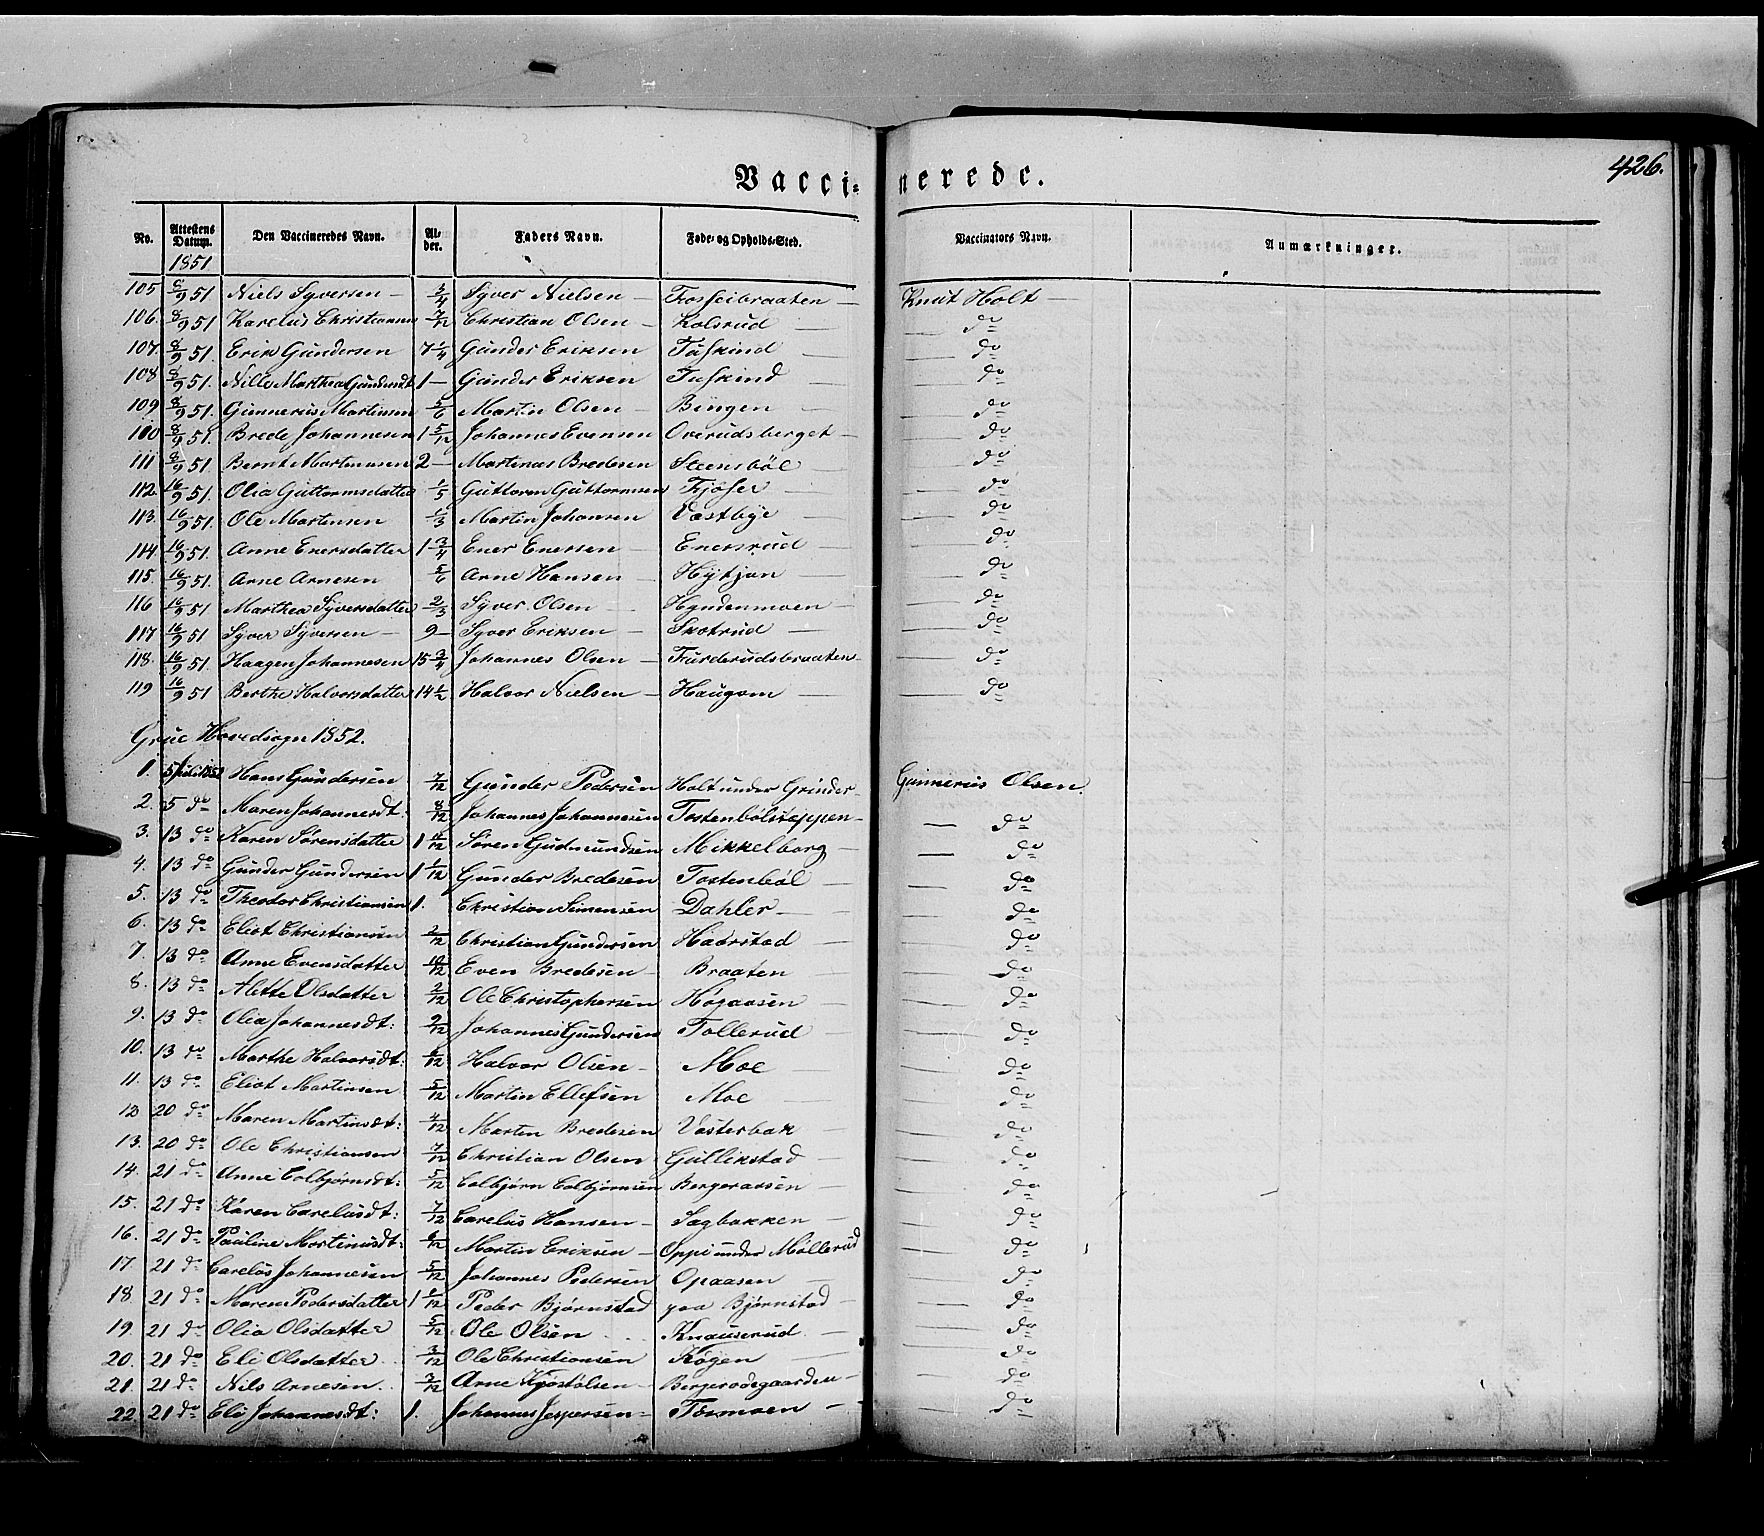 426.
Vacci- nerede.
No. Attestens Datum. Den Vaccineredes Navn. Al- der. Faders Navn. Føde- og Opholds-Sted. Vaccinators Navn. Anmærkninger.
1851
105 8/9 51 Niels Syversen — 3/4 Syver Nielsen — Fosseibraaten — Knut Holt —
106. 8/9 51 Karelus Christiansen 7/12 Christian Olsen — Kolsrud — — do
107. 8/9 51. Erik Gundersen 7 1/4 Gunder Eriksen Tuskind — do
108 8/9 51. Nille Marthea Gundersdt 1 — Gunder Eriksen Tuskind — — do
109 8/9 51. Gunnerius Martinsen 5/6 Martin Olsen — Bingen — — do
110 8/9 51. Brede Johannesen 1 5/12 Johannes Evensen Overudsberget — — do
111 8/9 51. Bernt Martinusen 2 — Martinus Bredesen Steensbøl — — do
112. 16/9 51. Olia Guttormsdatter 1/5 Guttorm Guttormsen Fjøser — — do
113. 16/9 51. Ole Martinsen 1/3 Martin Johansen Vestbye — — do
114. 16/9 51. Anne Enersdatter 1 3/4 Ener Enersen — Enersrud — — do
115. 16/9 51. Arne Arnesen 5/6 Arne Hansen — Hytjan — — do
116 16/9 51 Marthea Syversdatter 2/3 Syver Olsen — Hyndenmoen — — do
117 16/9 51 Syver Syversen — 9 — Syver Eriksen — Skotrud — — do
118. 16/9 51. Haagen Johannesen 15 3/4 Johannes Olsen — Furderudsbraaten — do
119 16/9 51 Berthe Halvorsdatter 14 1/2 Halvor Nielsen — Haugom — — do
Grue Hovedsogn 1852.
1. 5 Juli 1852 Hans Gundersen 7/12 Gunder Pedersen Holt under Grinder — Gunnerius Olsen.
2. 5 do Maren Johannesdt: 8/12 Johannes Johannesen Tostenbølstøppen — — do
3. 13 do Karen Sørensdatter 1 /12 Søren Gudmundsen Mikkelborg — — do
4. 13 do Gunder Gundersen 1 1/12 Gunder Bredesen Tostenbøl — — do
5. 13 do Theodor Christiansen 1. Christian Simensen Dahler — — do
6. 13 do Eliot Christiansen 2/12 Christian Gundersen Haarstad — — do
7. 13 do Anne Evensdatter 10/12 Even Bredesen — Braaten — — do
8. 13 do Alette Olsdatter 2/12 Ole Christophersen Høgaasen — — do
9. 13 do Olia Johannesdt: 9/12 Johannes Gundersen Tollerud — — do
10. 13 do Marthe Halvorsdt: /12 Halvor Olsen — Moe — — do
11. 13 do Eliot Martinsen 5/12 Martin Ellefsen Moe — — do
12 20 do Maren Martinsdt: 4/12 Martin Bredesen Vesterbak — — do
13. 20 do Ole Christiansen 7/12 Christian Olsen Gullikstad — — do
14. 21 do Anne Colbjørnsdt: 5/12 Colbjørn Colbjørnsen Bergeraasen — — do
15. 21 do Karen Carelusdt: 7/12 Carelus Hansen — Sagbakken — — do
16. 21 do Pauline Martinusdt: /12 Martin Eriksen — Oppi under Møllerud — do
17. 21 do Carelus Johannesen 5/12 Johannes Pedersen Opaasen — — do
18. 21 do Maren Pedersdatter 1 /12 Peder Bjørnstad paa Bjørnstad — — do
19. 21 do Olia Olsdatter 5/12 Ole Olsen Knauserud — — do
20. 21 do Eli Olsdatter 3/12 Ole Christiansen Kogen — — do
21. 21 do Nils Arnesen 3/12 Arne Kjøstølsen — Bergerodegaarden — — do
22. 21 do Eli Johannesdt: 1. Johannes Jespersen — Tormoen — — do